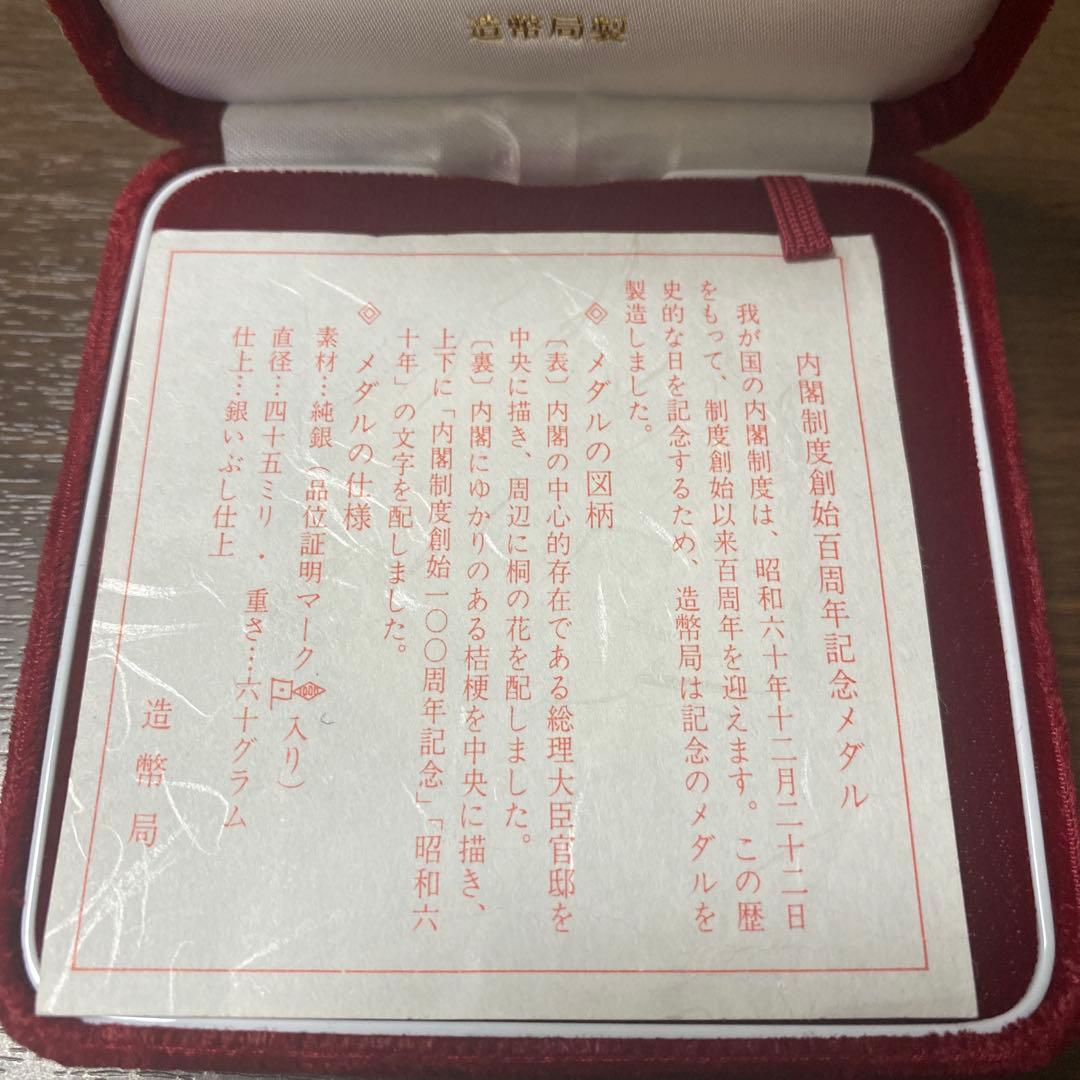 造幣局製
内閣制度創始百周年記念メダル
我が国の内閣制度は、昭和六十年十二月二十二日
をもって、制度創始以来百周年を迎えます。この歴
史的な日を記念するため、造幣局は記念のメダルを
製造しました。
◎ メダルの図柄
〔表〕内閣の中心的存在である総理大臣官邸を
中央に描き、周辺に桐の花を配しました。
〔裏〕内閣にゆかりのある桔梗を中央に描き、
上下に「内閣制度創始一〇〇周年記念」「昭和六
十年」の文字を配しました。
◎ メダルの仕様
素材…純銀(品位証明マーク入り)
直径…四十五ミリ ・ 重さ…六十グラム
仕上…銀いぶし仕上
造幣局